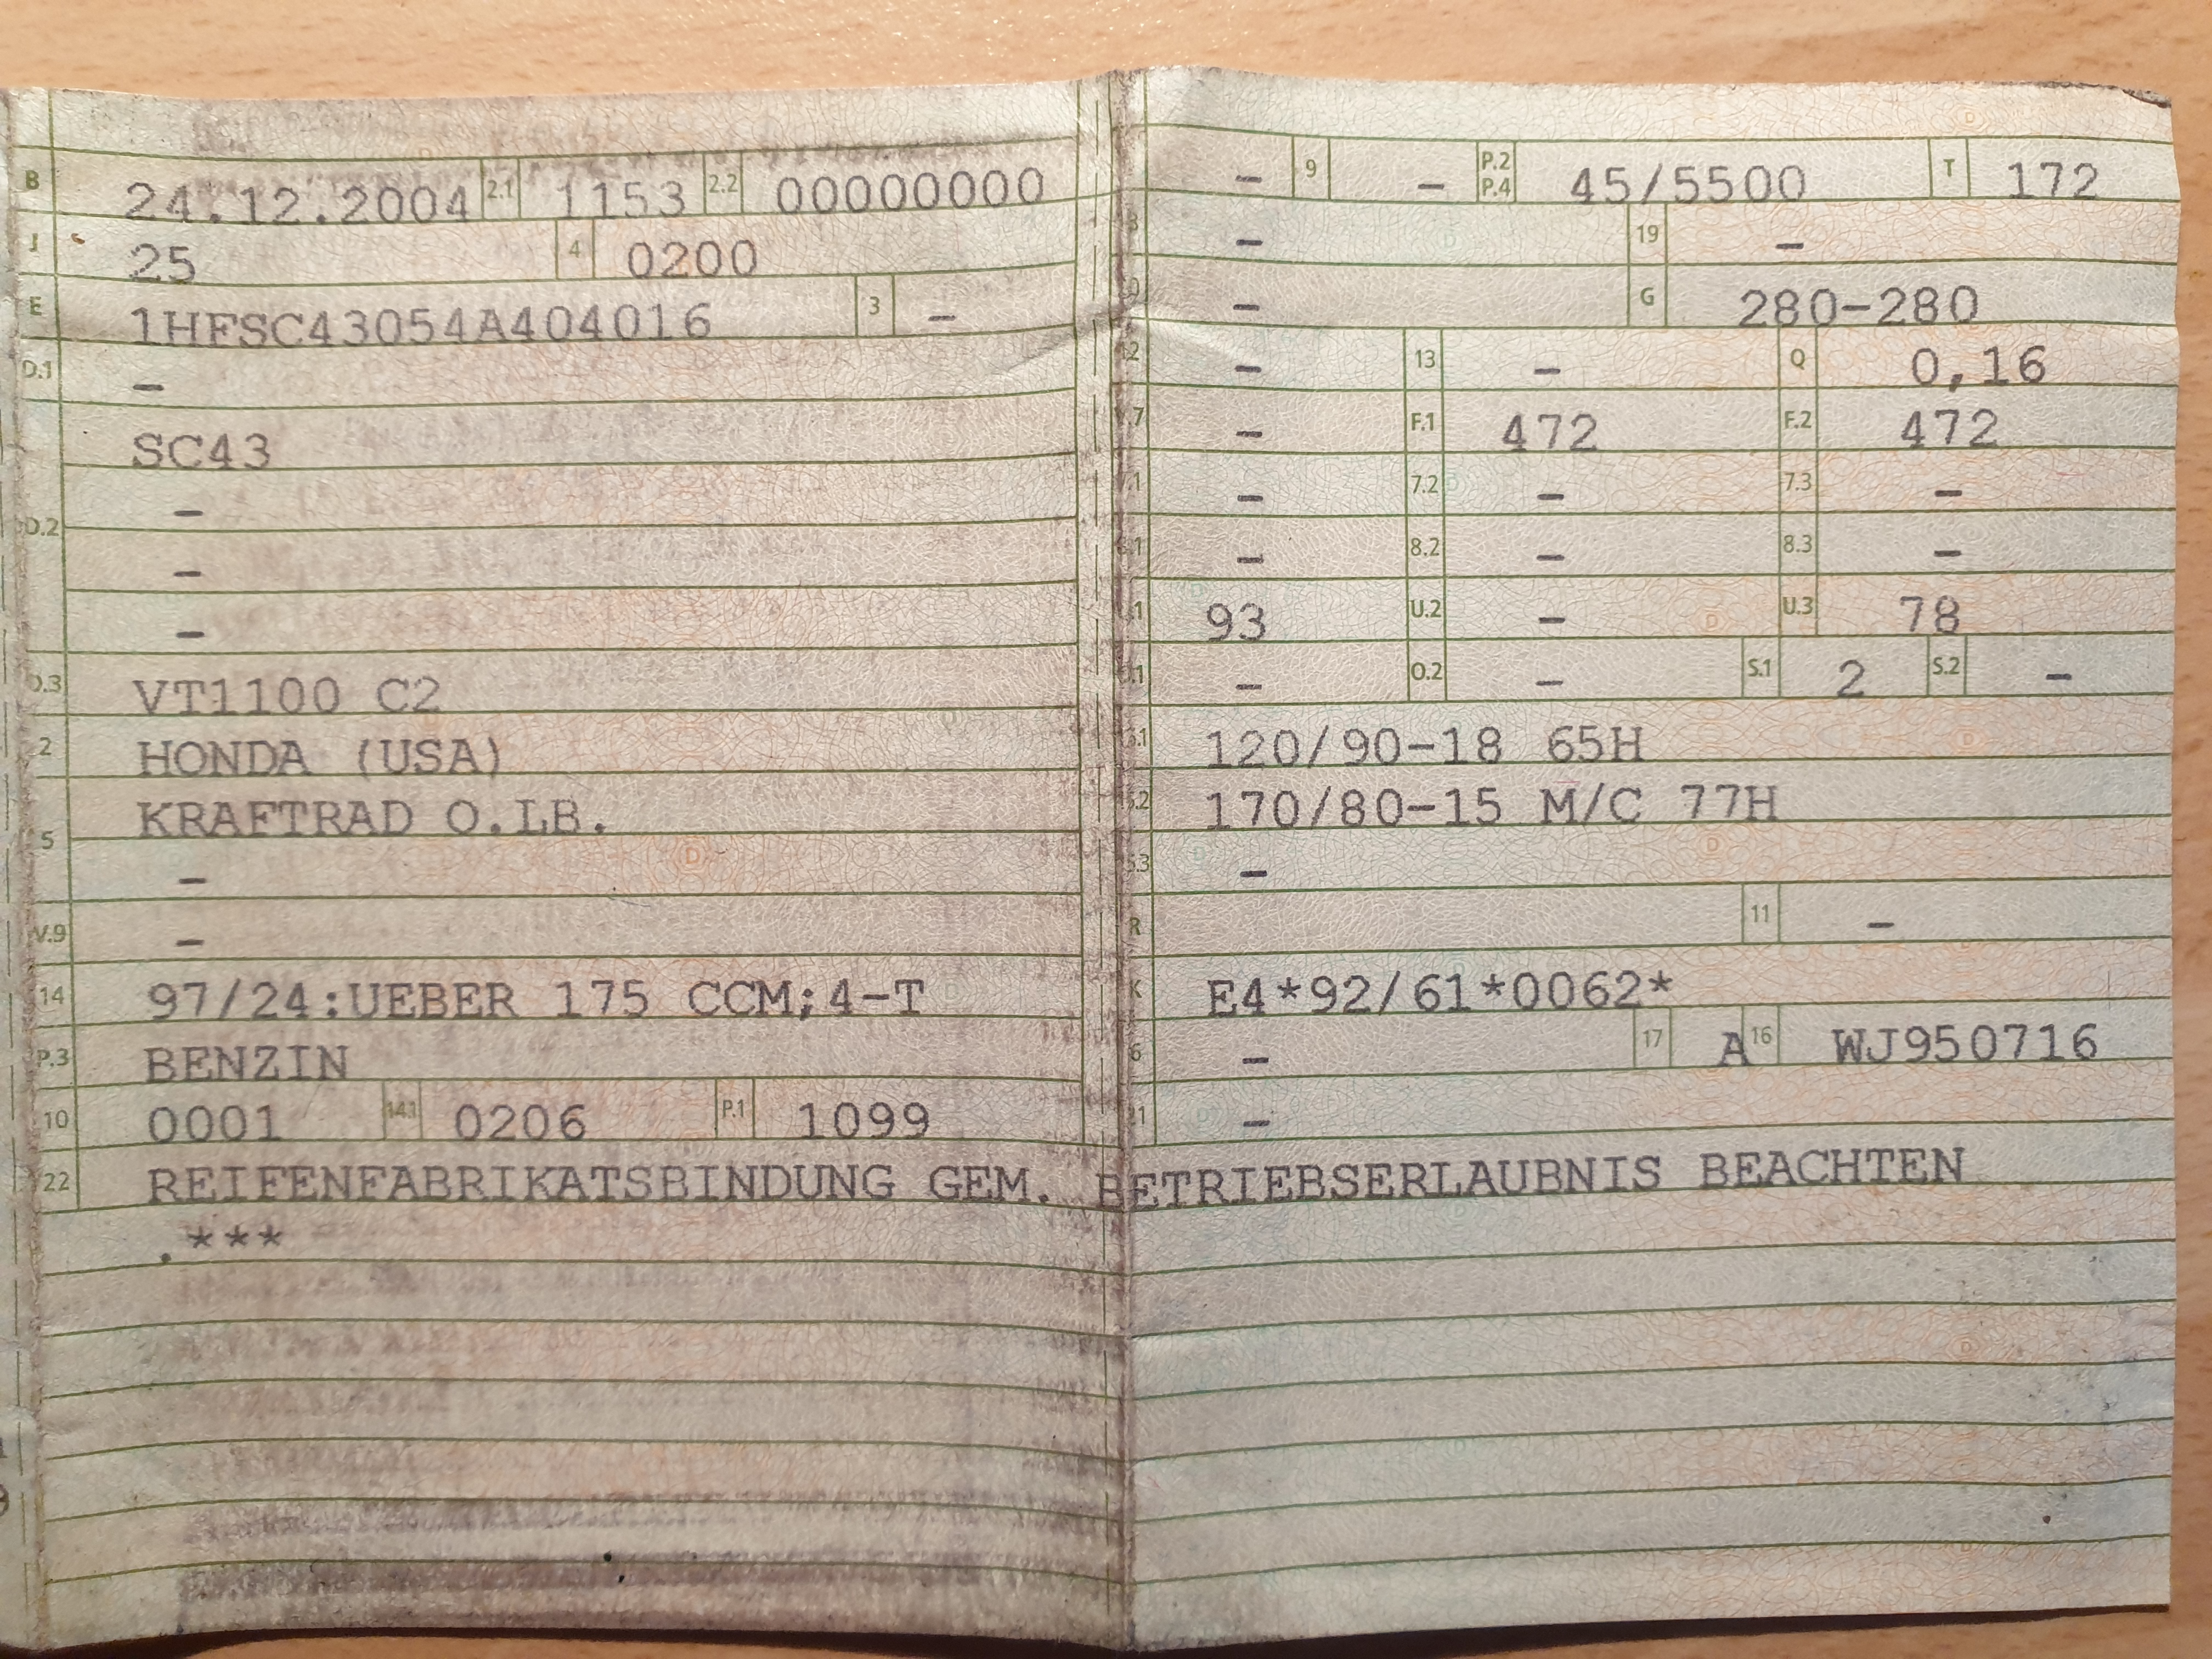 B 24.12.2004 2.1 1153 2.2 00000000
J 25 4 0200
E 1HFSC43054A404016 3 -
D.1 -
SC43
-
D.2
-
-
D.3 VT1100 C2
2 HONDA (USA)
KRAFTRAD O.LB.
5
-
V.9 -
14 97/24:UEBER 175 CCM;4-T
P.3 BENZIN
10 0001 14.1 0206 P.1 1099
22 REIFENFABRIKATSBINDUNG GEM. BETRIEBSERLAUBNIS BEACHTEN
.***
- 9 - P.2 P.4 45/5500 T 172
- 19 -
- G 280-280
12 - 13 - Q 0,16
V.7 - F.1 472 F.2 472
7.1 - 7.2 - 7.3 -
8.1 - 8.2 - 8.3 -
U.1 93 U.2 - U.3 78
O.1 - O.2 - S.1 2 S.2 -
15.1 120/90-18 65H
15.2 170/80-15 M/C 77H
15.3 -
R 11 -
K E4*92/61*0062*
6 - 17 A 16 WJ950716
21 -